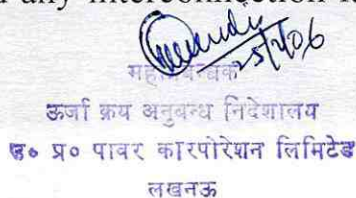 any interconnection
25/4/06
महाप्रबन्धक
ऊर्जा क्रय अनुबन्ध निदेशालय
उ० प्र० पावर कारपोरेशन लिमिटेड
लखनऊ